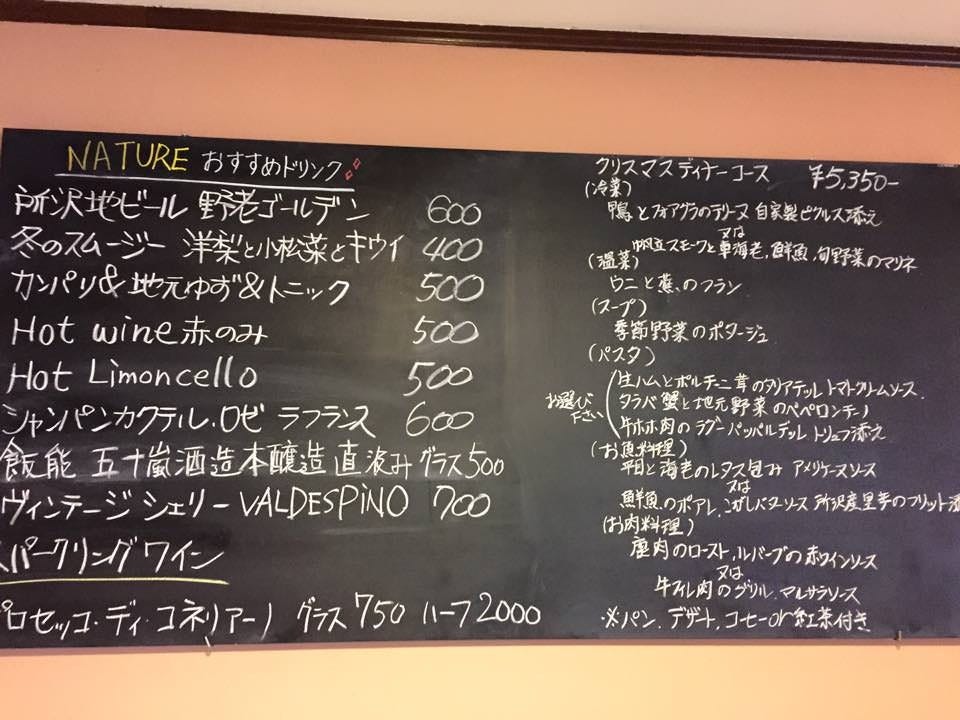 NATURE おすすめドリンク
所沢地ビール 野老ゴールデン 600
冬のスムージー 洋梨と小松菜とキウイ 400
カンパリ&地元ゆず&トニック 500
Hot wine 赤のみ 500
Hot Limoncello 500
シャンパンカクテル.ロゼ ラフランス 600
飯能 五十嵐酒造本醸造 直汲み グラス500
ヴィンテージ シェリー VALDESPINO 700
スパークリングワイン
プロセッコ・ディ・コネリアーノ グラス750 ハーフ2000
クリスマスディナーコース ¥5,350-
(冷菜)
鴨とフォアグラのテリーヌ 自家製ピクルス添え
又は
帆立スモークと車海老,鮮魚,旬野菜のマリネ
(温菜)
ウニと蕉、のフラン
(スープ)
季節野菜のポタージュ
(パスタ)
お選び下さい
生ハムとポルチーニ茸のタリアテッレ トマトクリームソース.
タラバ蟹と地元野菜のペペロンチーノ
牛ホホ肉のラグー パッパルデッレ トリュフ添え
(お魚料理)
平目と海老のレタス包み アメリケースソース
又は
鮮魚のポアレ.こがしバターソース 所沢産里芋のフリット添
(お肉料理)
鹿肉のロースト,ルバーブの赤ワインソース
又は
牛フィレ肉のグリル.マルサラソース
※パン.デザート,コーヒーor紅茶付き